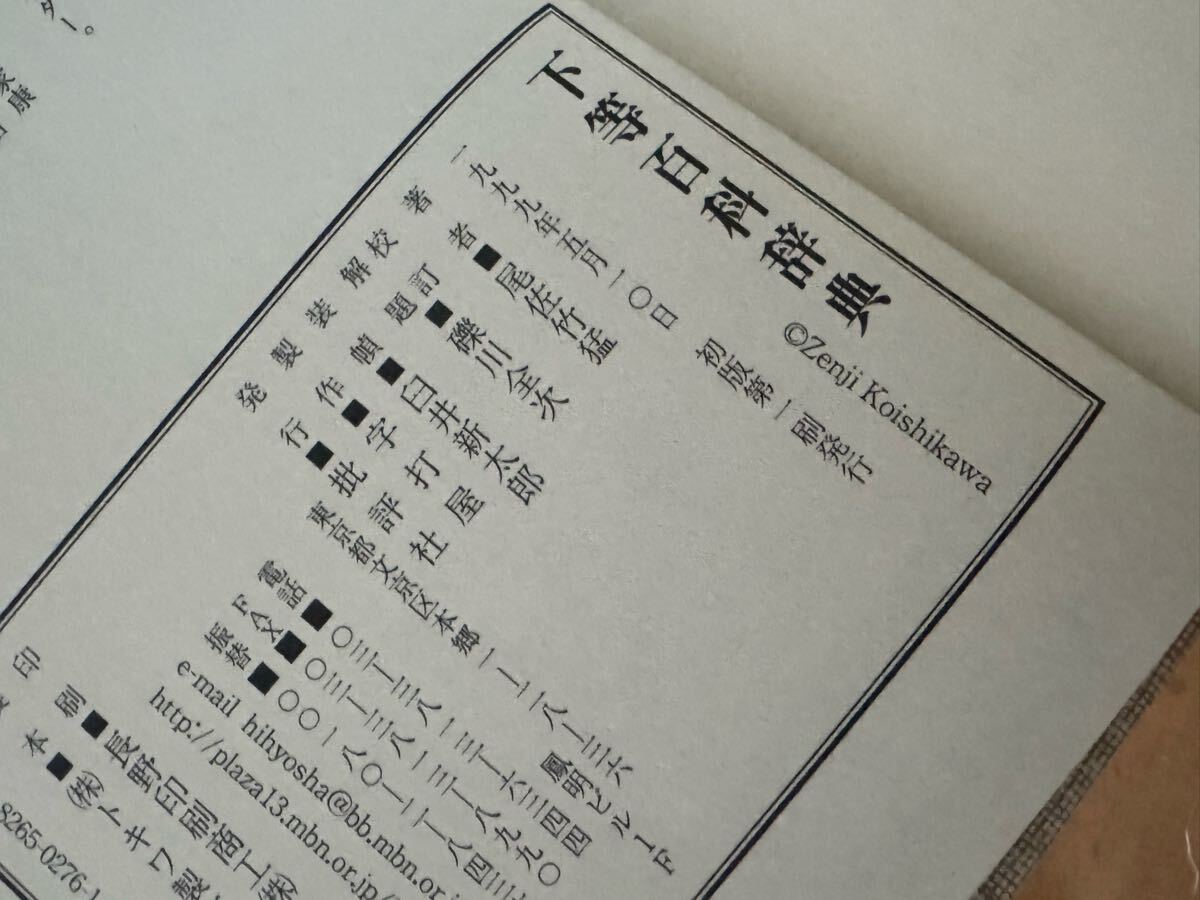 下等百科辞典
©Zenji Koishikawa
一九九九年五月一〇日　初版第一刷発行
著者■尾佐竹猛
校訂■礫川全次
解題
装幀■臼井新太郎
製作■字打屋
発行■批評社
東京都文京区本郷一ー二八ー三六　鳳明ビル一F
電話■〇三ー三八一三ー六三四四
FAX■〇三ー三八一三ー八九九〇
振替■〇〇一八〇ー二ー八四三
e-mail hihyosha@bb.mbn.or.j
http://plaza13.mbn.or.jp/
印刷■長野印刷商工㈱
本■㈱トキワ製
8265-0276-
ター。
家康